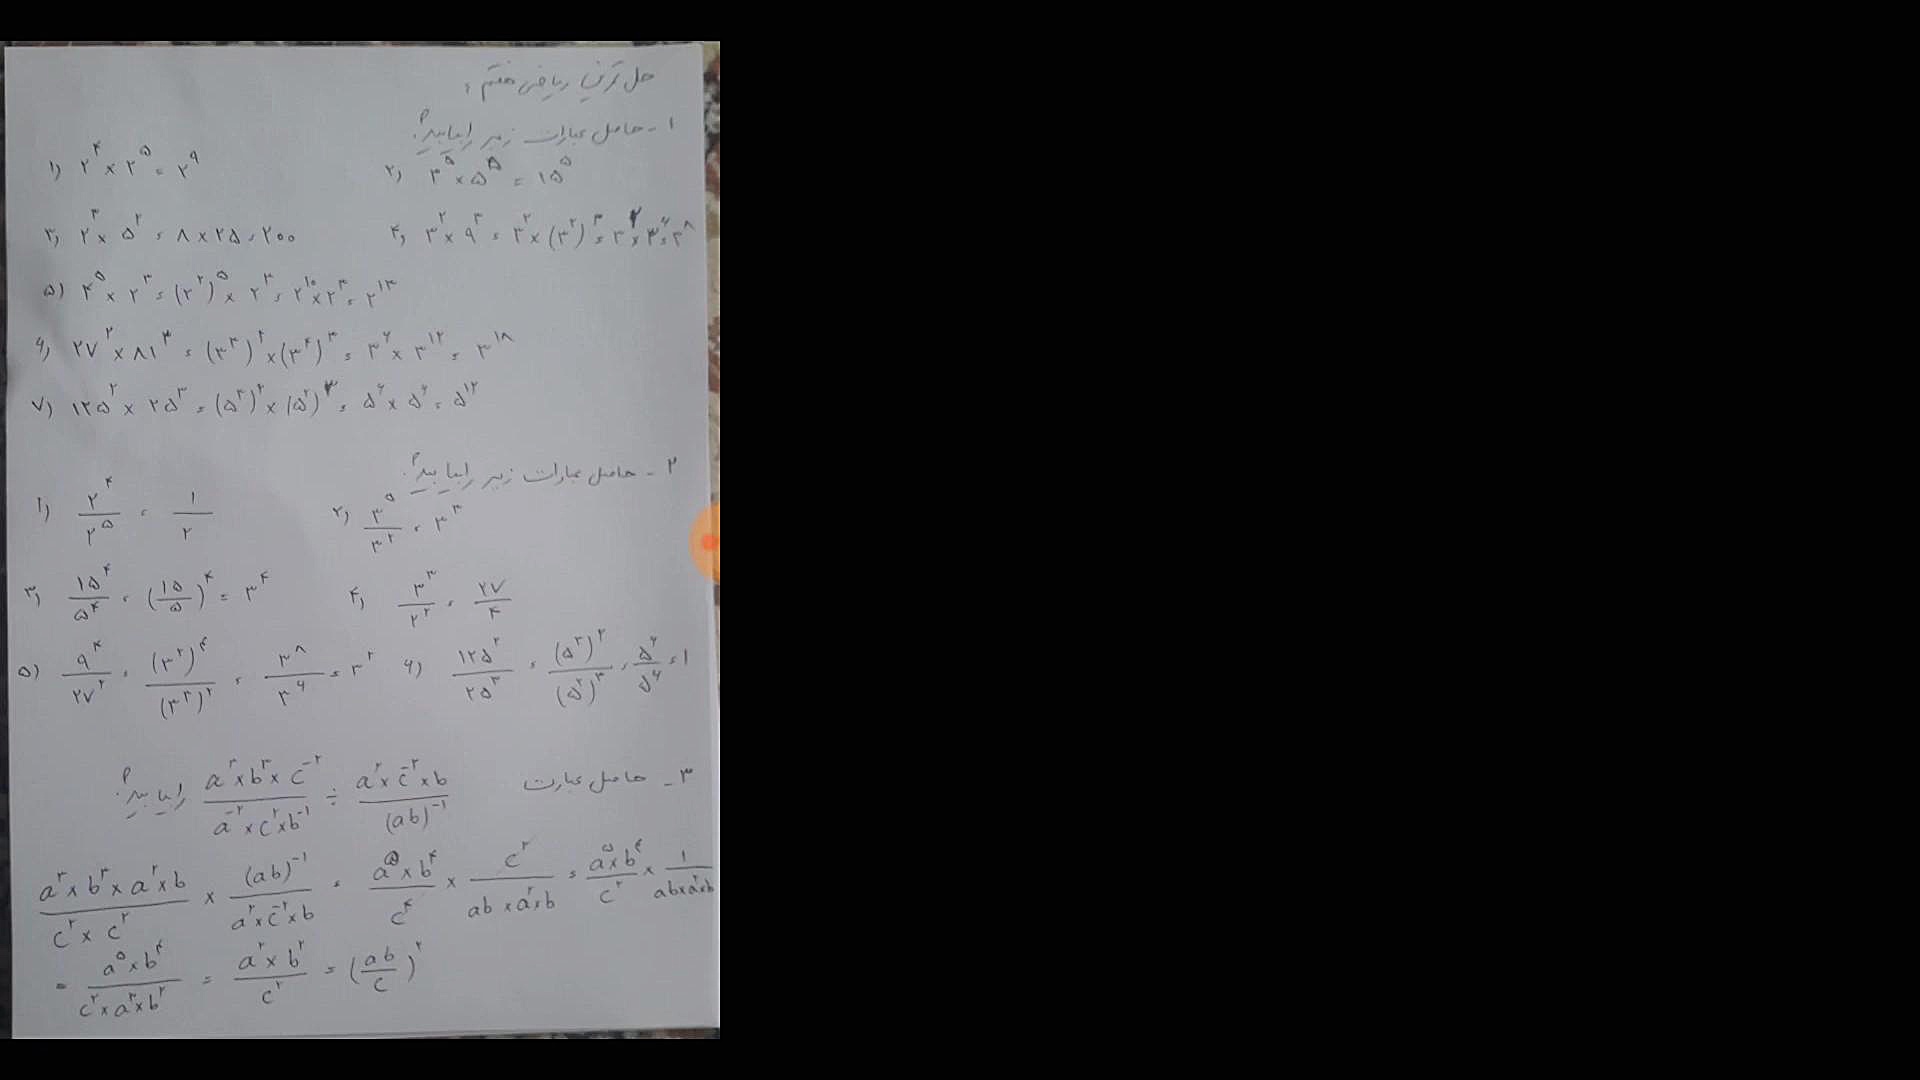 حل تمرین ریاضی هفتم :
۱ - حاصل عبارات زیر را بیابید؟
۱) ۲^۴ × ۲^۵ = ۲^۹ ۲) ۳^۵ × ۵^۵ = ۱۵^۵
۳) ۲^۳ × ۵^۲ = ۸ × ۲۵ = ۲۰۰ ۴) ۳^۲ × ۹^۳ = ۳^۲ × (۳^۲)^۳ = ۳^۲ × ۳^۶ = ۳^۸
۵) ۴^۵ × ۲^۳ = (۲^۲)^۵ × ۲^۳ = ۲^۱۰ × ۲^۳ = ۲^۱۳
۶) ۲۷^۲ × ۸۱^۳ = (۳^۳)^۲ × (۳^۴)^۳ = ۳^۶ × ۳^۱۲ = ۳^۱۸
۷) ۱۲۵^۲ × ۲۵^۳ = (۵^۳)^۲ × (۵^۲)^۳ = ۵^۶ × ۵^۶ = ۵^۱۲
۲ - حاصل عبارات زیر را بیابید؟
۱) ۲^۴ / ۲^۵ = ۱ / ۲ ۲) ۳^۵ / ۳^۲ = ۳^۳
۳) ۱۵^۴ / ۵^۴ = (۱۵ / ۵)^۴ = ۳^۴ ۴) ۳^۳ / ۲^۲ = ۲۷ / ۴
۵) ۹^۴ / ۲۷^۲ = (۳^۲)^۴ / (۳^۳)^۲ = ۳^۸ / ۳^۶ = ۳^۲ ۶) ۱۲۵^۲ / ۲۵^۳ = (۵^۳)^۲ / (۵^۲)^۳ = ۵^۶ / ۵^۶ = ۱
۳ - حاصل عبارت a^۳ × b^۳ × c^-۲ / a^-۲ × c^۲ × b^-۱ ÷ a^۲ × c^-۲ × b / (ab)^-۱ را بیابید؟
a^۳ × b^۳ × a^۲ × b / c^۲ × c^۲ × (ab)^-۱ / a^۲ × c^-۲ × b = a^۵ × b^۴ / c^۴ × c^۲ / ab × a^۲ × b = a^۵ × b^۴ / c^۲ × ۱ / ab × a^۲ × b
= a^۵ × b^۴ / c^۲ × a^۳ × b^۲ = a^۲ × b^۲ / c^۲ = (ab / c)^۲